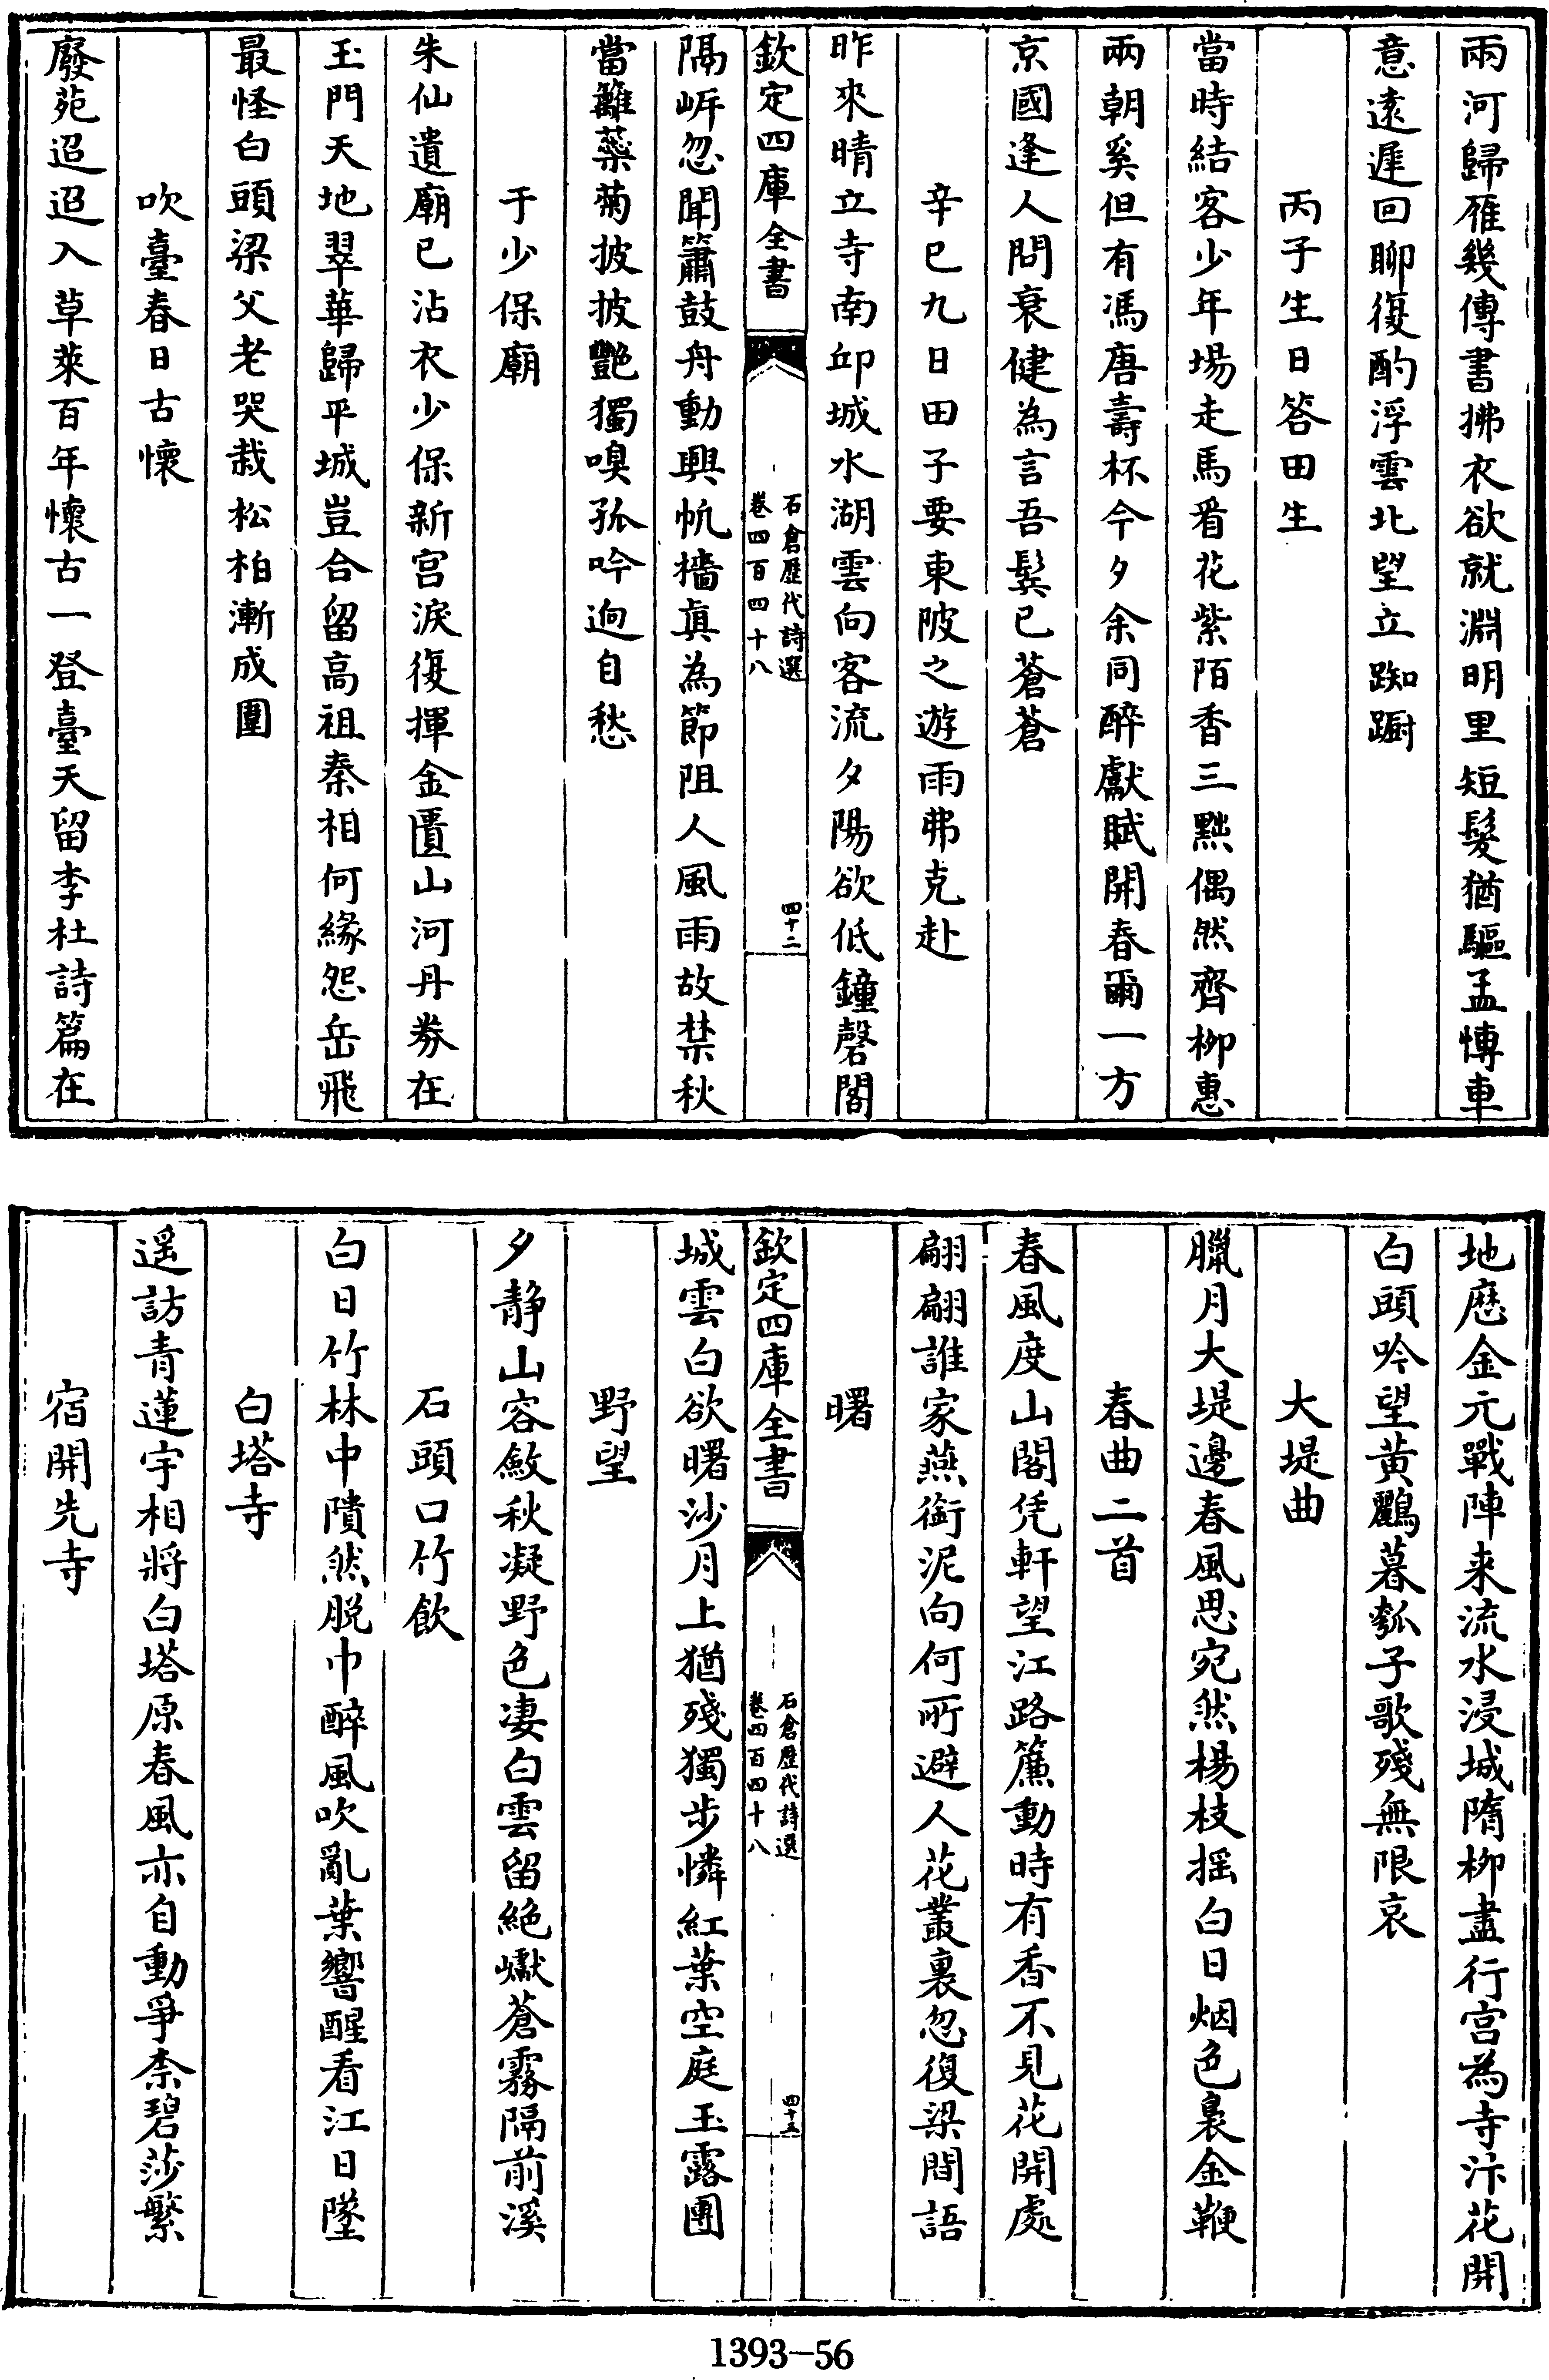 兩河歸雁幾傳書拂衣欲就淵明里短髮猶驅孟慱車
意遠遲回聊復酌浮雲北望立踟蹰
丙子生日答田生
當時結客少年場走馬看花紫陌香三黜偶然齊柳惠
兩朝奚但有馮唐壽杯今夕余同醉獻賦開春爾一方
京國逢人問衰健為言吾鬂已蒼蒼
辛巳九日田子要東陂之遊雨弗克赴
昨來晴立寺南邱城水湖雲向客流夕陽欲低鐘磬閣
欽定四庫全書
石倉歷代詩選
卷四百四十八
四十二
隔岍忽聞簫鼓舟動興帆檣真為節阻人風雨故禁秋
當籬蘂菊披披艷獨嗅孤吟逈自愁
于少保廟
朱仙遺廟已沾衣少保新宫淚復揮金匱山河丹券在
玉門天地翠華歸平城豈合留高祖秦相何緣怨岳飛
最怪白頭梁父老哭栽松柏漸成圍
吹臺春日古懷
廢苑迢迢入草萊百年懷古一登臺天留李杜詩篇在
地歴金元戰陣來流水浸城隋栁盡行宫為寺汴花開
白頭吟望黃鸝暮瓠子歌殘無限哀
大堤曲
臘月大堤邊春風思宛然楊枝揺白日烟色裊金鞭
春曲二首
春風度山閣凭軒望江路簾動時有香不見花開處
翩翩誰家燕銜泥向何所避人花叢裏忽復梁間語
曙
欽定四庫全書
石倉歷代詩選
卷四百四十八
四十三
城雲白欲曙沙月上猶殘獨步憐紅葉空庭玉露團
野望
夕靜山容斂秋凝野色凄白雲留絶巘蒼霧隔前溪
石頭口竹飲
白日竹林中隤然脱巾醉風吹亂葉響醒看江日墜
白塔寺
遥訪青蓮宇相將白塔原春風亦自動爭柰碧莎繁
宿開先寺
1393-56